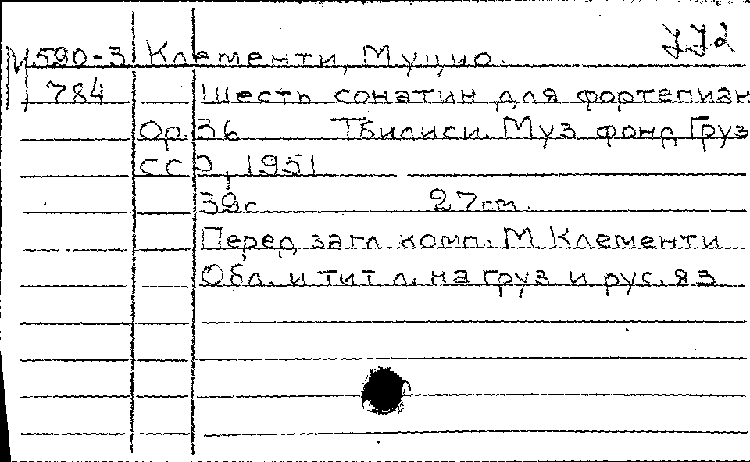 М590-3 Клементи, Муцио.
784 Шесть сонатин для фортепиан
Ор. 36 Тбилиси. Муз фонд Груз
ССР, 1951
39с 27см.
Перед загл. комп. М Клементи
Обл. и тит л. на груз и рус. яз